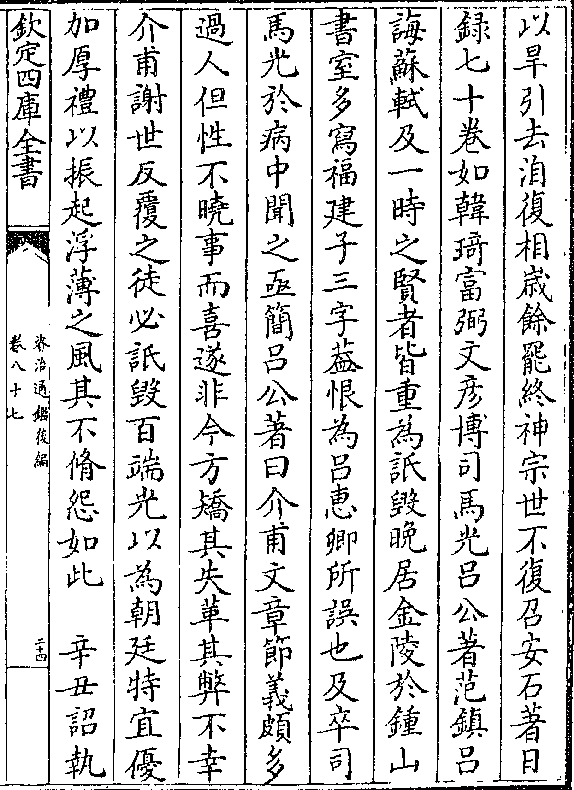 以旱引去洎復相歲餘罷終神宗世不復召安石著日
録七十卷如韓琦富弼文彦博司馬光吕公著范鎮吕
誨蘇軾及一時之賢者皆重為詆毀晚居金陵於鍾山
書室多寫福建子三字葢恨為吕惠卿所誤也及卒司
馬光於病中聞之亟簡吕公著曰介甫文章節義頗多
過人但性不曉事而喜遂非今方矯其失革其弊不幸
介甫謝世反覆之徒必詆毀百端光以為朝廷特宜優
加厚禮以振起浮薄之風其不脩怨如此　辛丑詔執
欽定四庫全書
資治通鑑後編
卷八十七
二十四